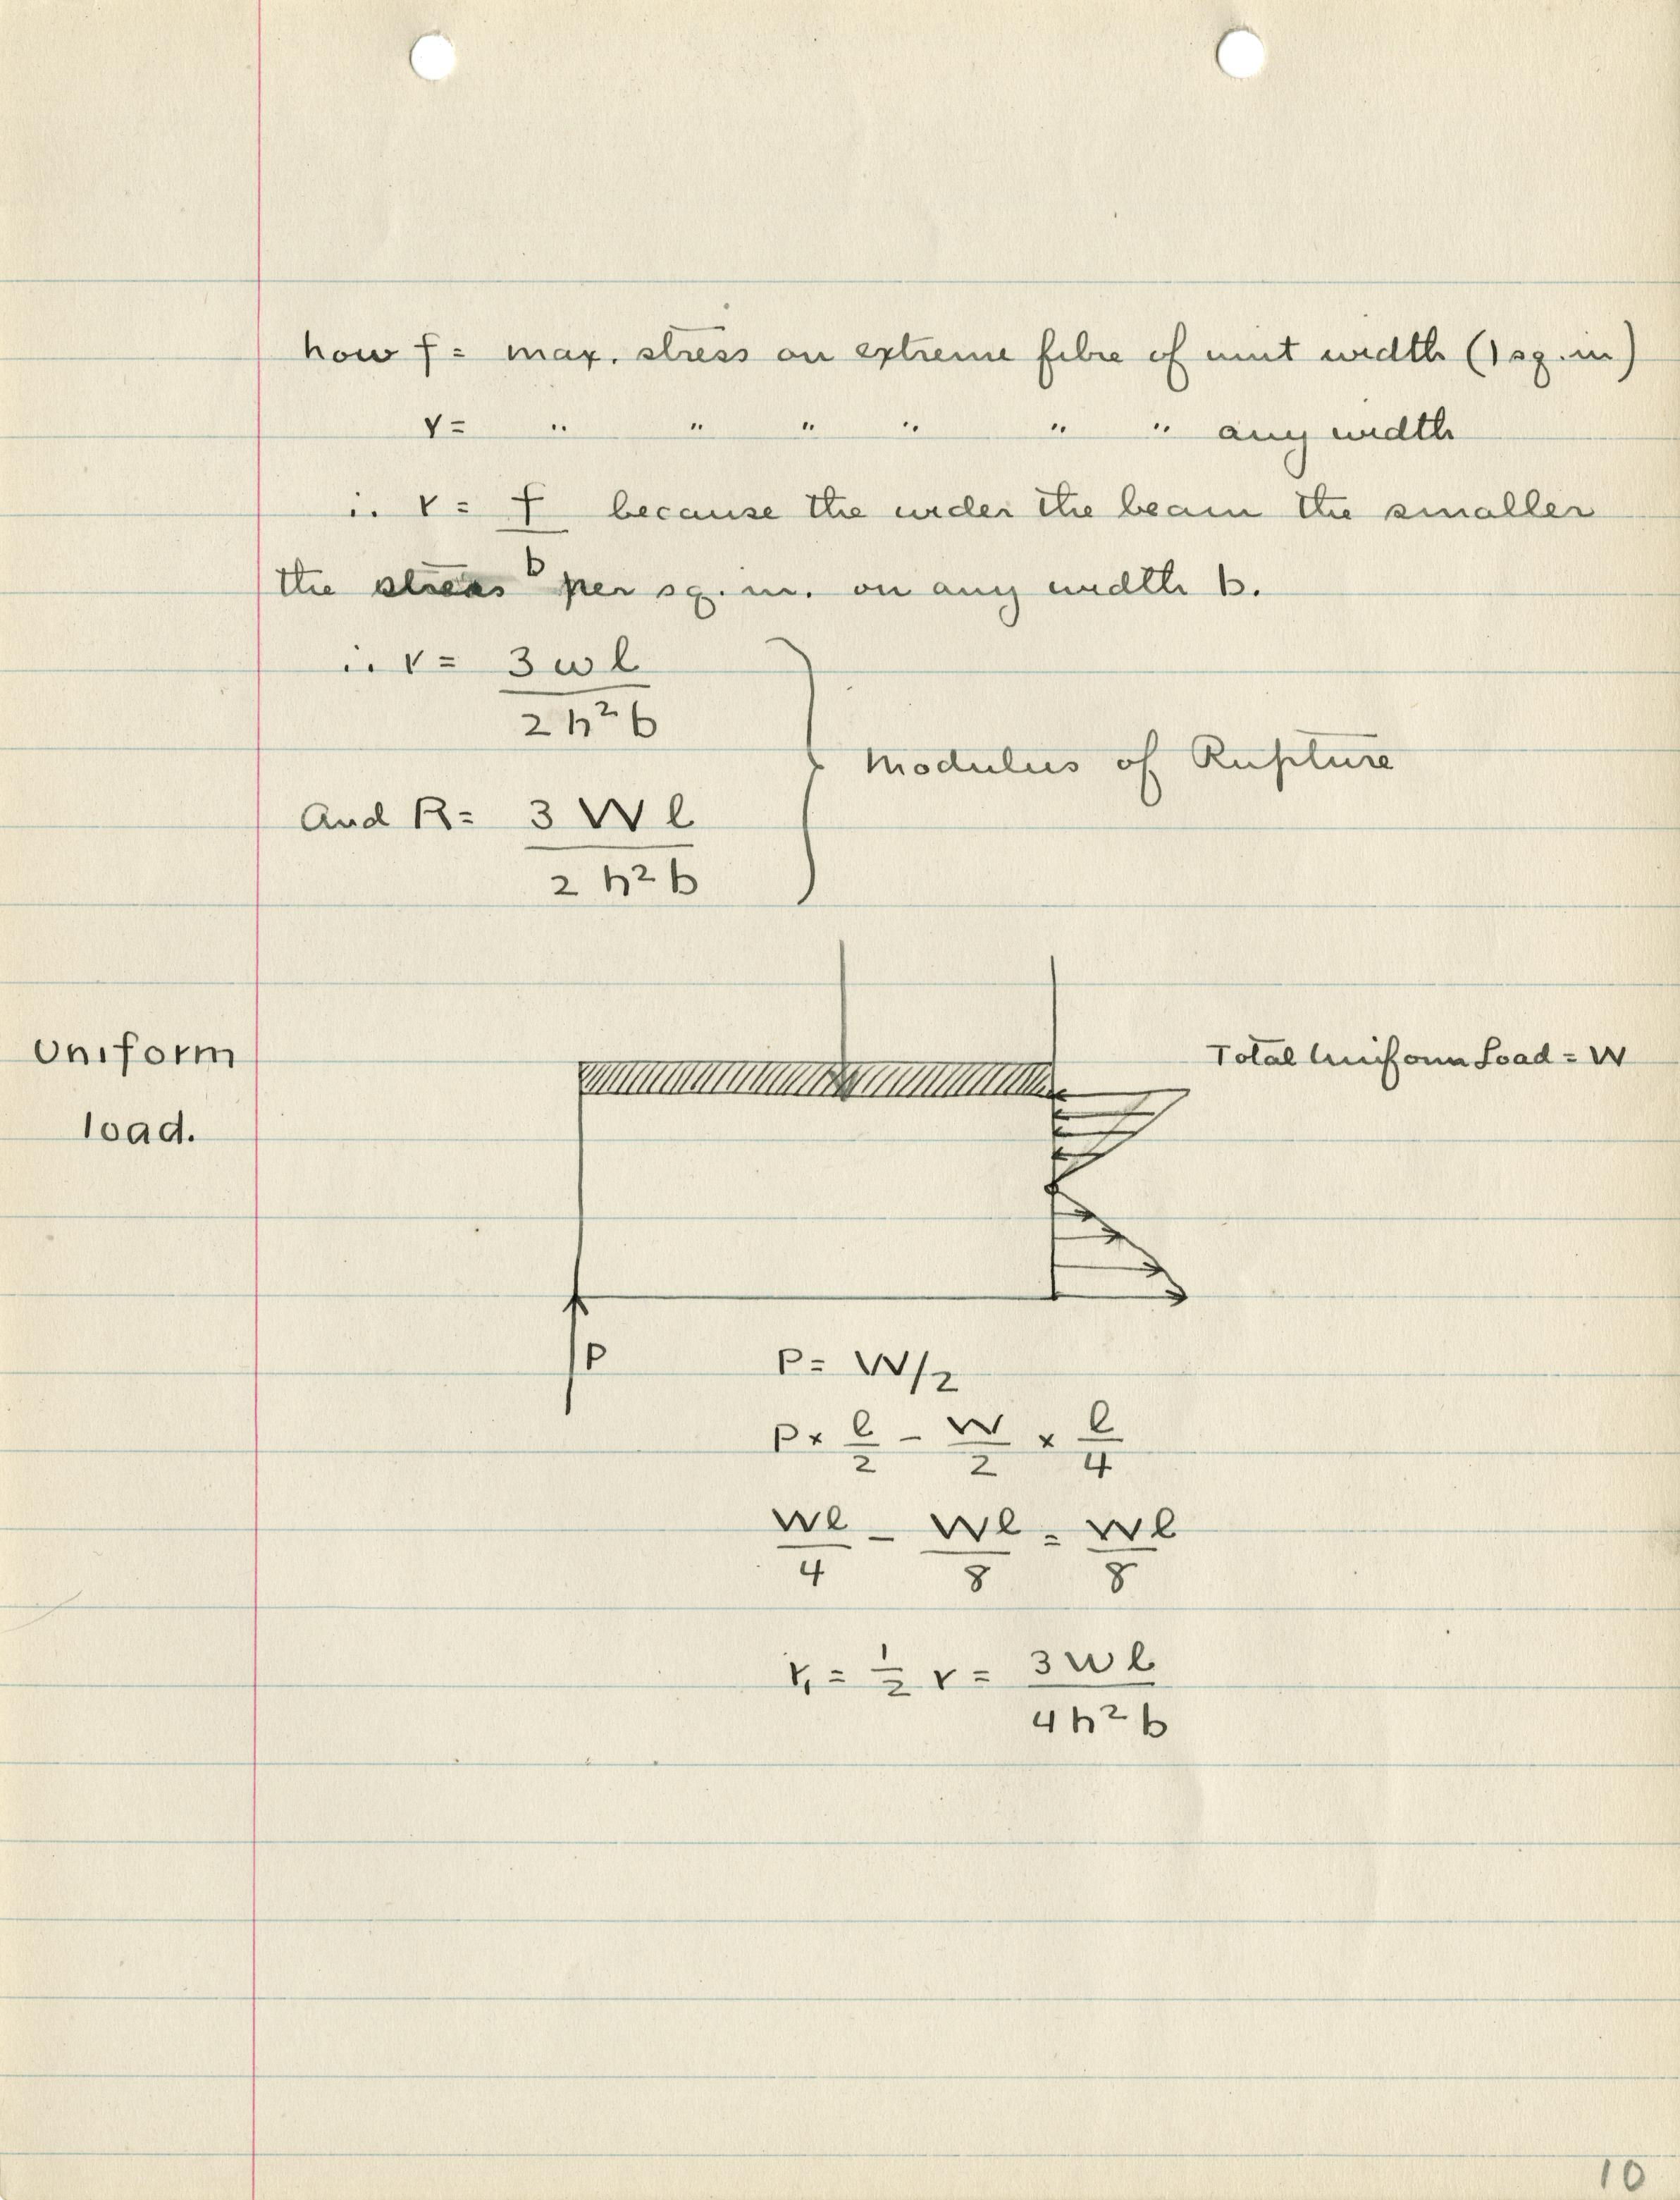 Now f = max. stress on extreme fibre of unit width (1 sq. in)
r = " " " " " " any width
∴ r = f/b because the wider the beam the smaller
the stress per sq. in. on any width b.
∴ r = 3wl / 2h²b
And R = 3Wl / 2h²b
Modulus of Rupture
Uniform
load.
Total Uniform Load = W
P
P = W/2
P × l/2 - W/2 × l/4
Wl/4 - Wl/8 = Wl/8
r₁ = 1/2 r = 3wl / 4h²b
10